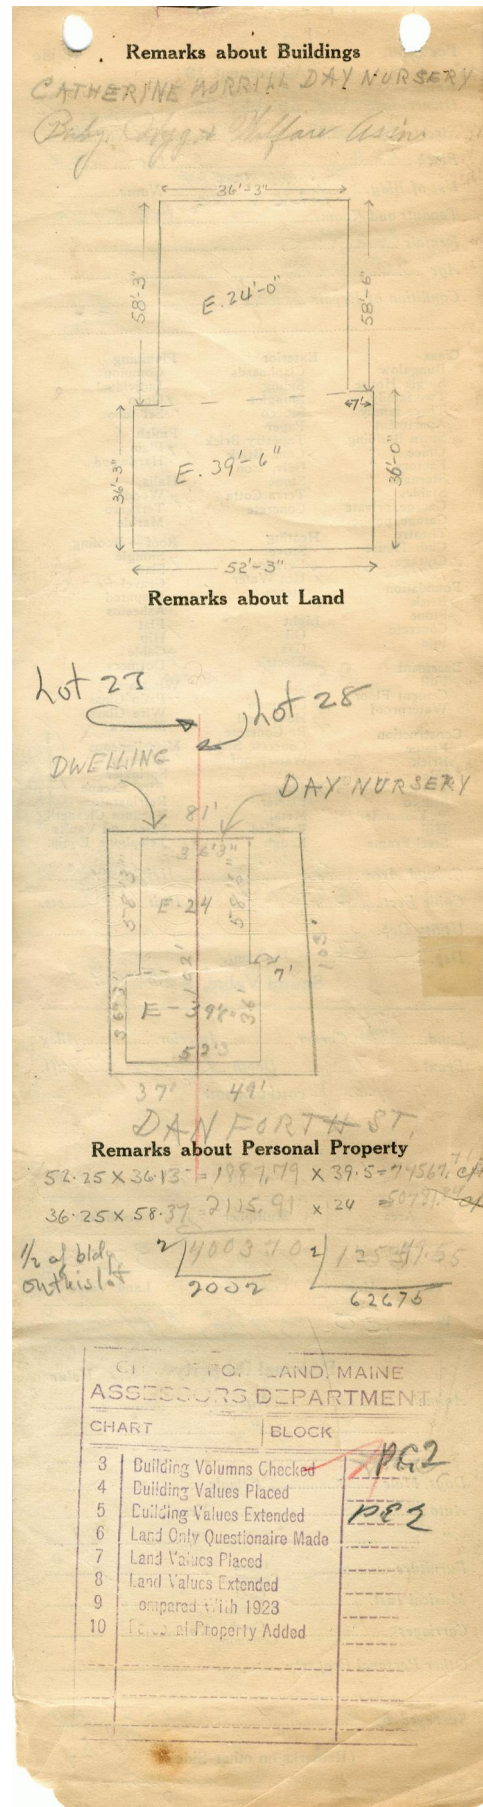 Remarks about Buildings
CATHERINE MORRILL DAY NURSERY
Baby Hyg. & Welfare Assn.
36'-3"
58'-3"
E. 24'-0"
58'-6"
7'
36'-3"
E. 39'-6"
36'-0"
52'-3"
Remarks about Land
Lot 23
Lot 28
DWELLING
DAY NURSERY
81'
36'3"
58'3"
E-24
58'6"
103'
102'
7'
36'3"
E-39'6"
36'
52'3
37' 49'
DANFORTH ST.
Remarks about Personal Property
52.25 X 36.13 = 1887.79 X 39.5 = 74567.71
36.25 X 58.37 = 2115.91 X 24 = 50781.84
1/2 of bldg
on this lot
2 400370 2 125349.55
2002 62675
CITY OF PORTLAND, MAINE
ASSESSORS DEPARTMENT
CHART BLOCK
3 Building Volumns Checked PG2
4 Building Values Placed
5 Building Values Extended PG2
6 Land Only Questionaire Made
7 Land Values Placed
8 Land Values Extended
9 Compared With 1923
10 Personal Property Added